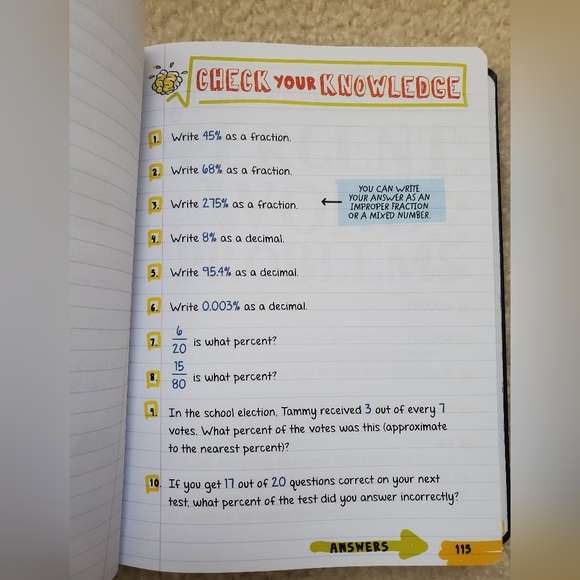 CHECK YOUR KNOWLEDGE
1. Write 45% as a fraction.
2. Write 68% as a fraction.
3. Write 275% as a fraction.
YOU CAN WRITE
YOUR ANSWER AS AN
IMPROPER FRACTION
OR A MIXED NUMBER.
4. Write 8% as a decimal.
5. Write 95.4% as a decimal.
6. Write 0.003% as a decimal.
7. 6/20 is what percent?
8. 15/80 is what percent?
9. In the school election, Tammy received 3 out of every 7
votes. What percent of the votes was this (approximate
to the nearest percent)?
10. If you get 17 out of 20 questions correct on your next
test, what percent of the test did you answer incorrectly?
ANSWERS 115